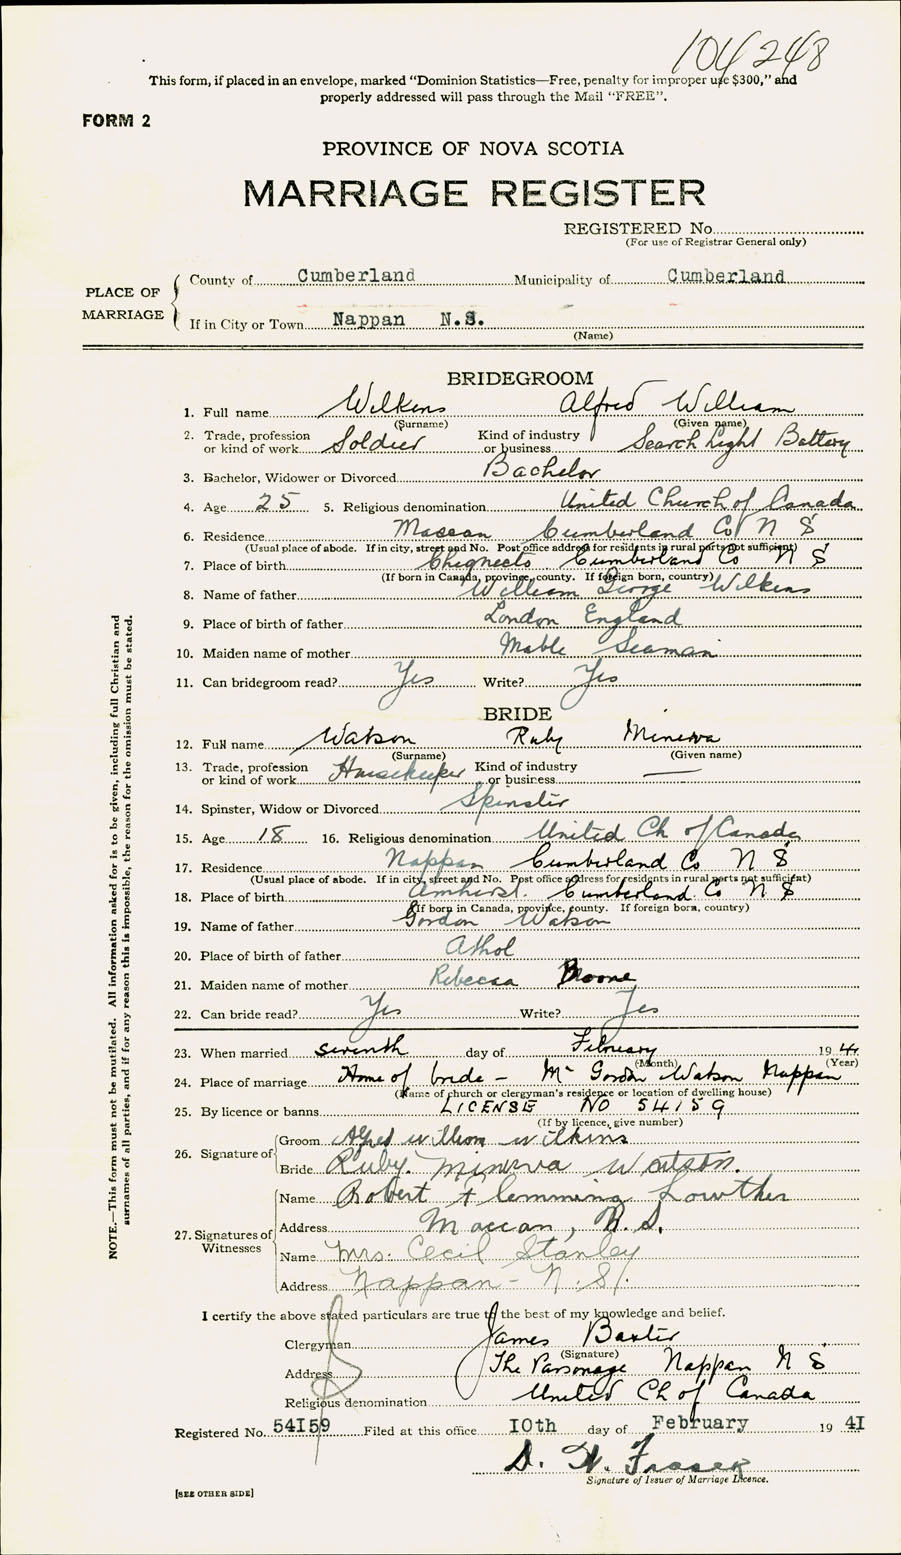 104248
This form, if placed in an envelope, marked “Dominion Statistics—Free, penalty for improper use $300,” and
properly addressed will pass through the Mail “FREE”.
FORM 2
PROVINCE OF NOVA SCOTIA
MARRIAGE REGISTER
REGISTERED No.
(For use of Registrar General only)
PLACE OF MARRIAGE
County of Cumberland Municipality of Cumberland
If in City or Town Nappan N.S.
(Name)
BRIDEGROOM
1. Full name Wilkens Alfred William
(Surname) (Given name)
2. Trade, profession or kind of work Soldier Kind of industry or business Search Light Battery
3. Bachelor, Widower or Divorced Bachelor
4. Age 25 5. Religious denomination United Church of Canada
6. Residence Maccan Cumberland Co N S
(Usual place of abode. If in city, street and No. Post office address for residents in rural parts not sufficient)
7. Place of birth Chignecto Cumberland Co N S
(If born in Canada, province, county. If foreign born, country)
8. Name of father William George Wilkens
9. Place of birth of father London England
10. Maiden name of mother Mable Seaman
11. Can bridegroom read? Yes Write? Yes
BRIDE
12. Full name Watson Ruby Minerva
(Surname) (Given name)
13. Trade, profession or kind of work Housekeeper Kind of industry or business —
14. Spinster, Widow or Divorced Spinster
15. Age 18 16. Religious denomination United Ch of Canada
17. Residence Nappan Cumberland Co N S
(Usual place of abode. If in city, street and No. Post office address for residents in rural parts not sufficient)
18. Place of birth Amherst. Cumberland Co N S
(If born in Canada, province, county. If foreign born, country)
19. Name of father Gordon Watson
20. Place of birth of father Athol
21. Maiden name of mother Rebecca
22. Can bride read? Yes Write? Yes
23. When married seventh day of February 19 41
(Month) (Year)
24. Place of marriage Home of bride – Mr Gordon Watson Nappan
(Name of church or clergyman's residence or location of dwelling house)
25. By licence or banns LICENSE NO 54159
(If by licence, give number)
26. Signature of
Groom Alfred William Wilkins
Bride Ruby. Minerva Watson.
27. Signatures of Witnesses
Name Robert Flemming Lowther
Address Maccan, N.S.
Name Mrs. Cecil Stanley
Address Nappan – N.S.
I certify the above stated particulars are true to the best of my knowledge and belief.
Clergyman James Baxter
(Signature)
Address The Parsonage Nappan N S
Religious denomination United Ch of Canada
Registered No. 54159 Filed at this office 10th day of February 19 41
D. W. Fraser
Signature of Issuer of Marriage Licence.
[SEE OTHER SIDE]
NOTE.—This form must not be mutilated. All information asked for is to be given, including full Christian and
surnames of all parties, and if for any reason this is impossible, the reason for the omission must be stated.